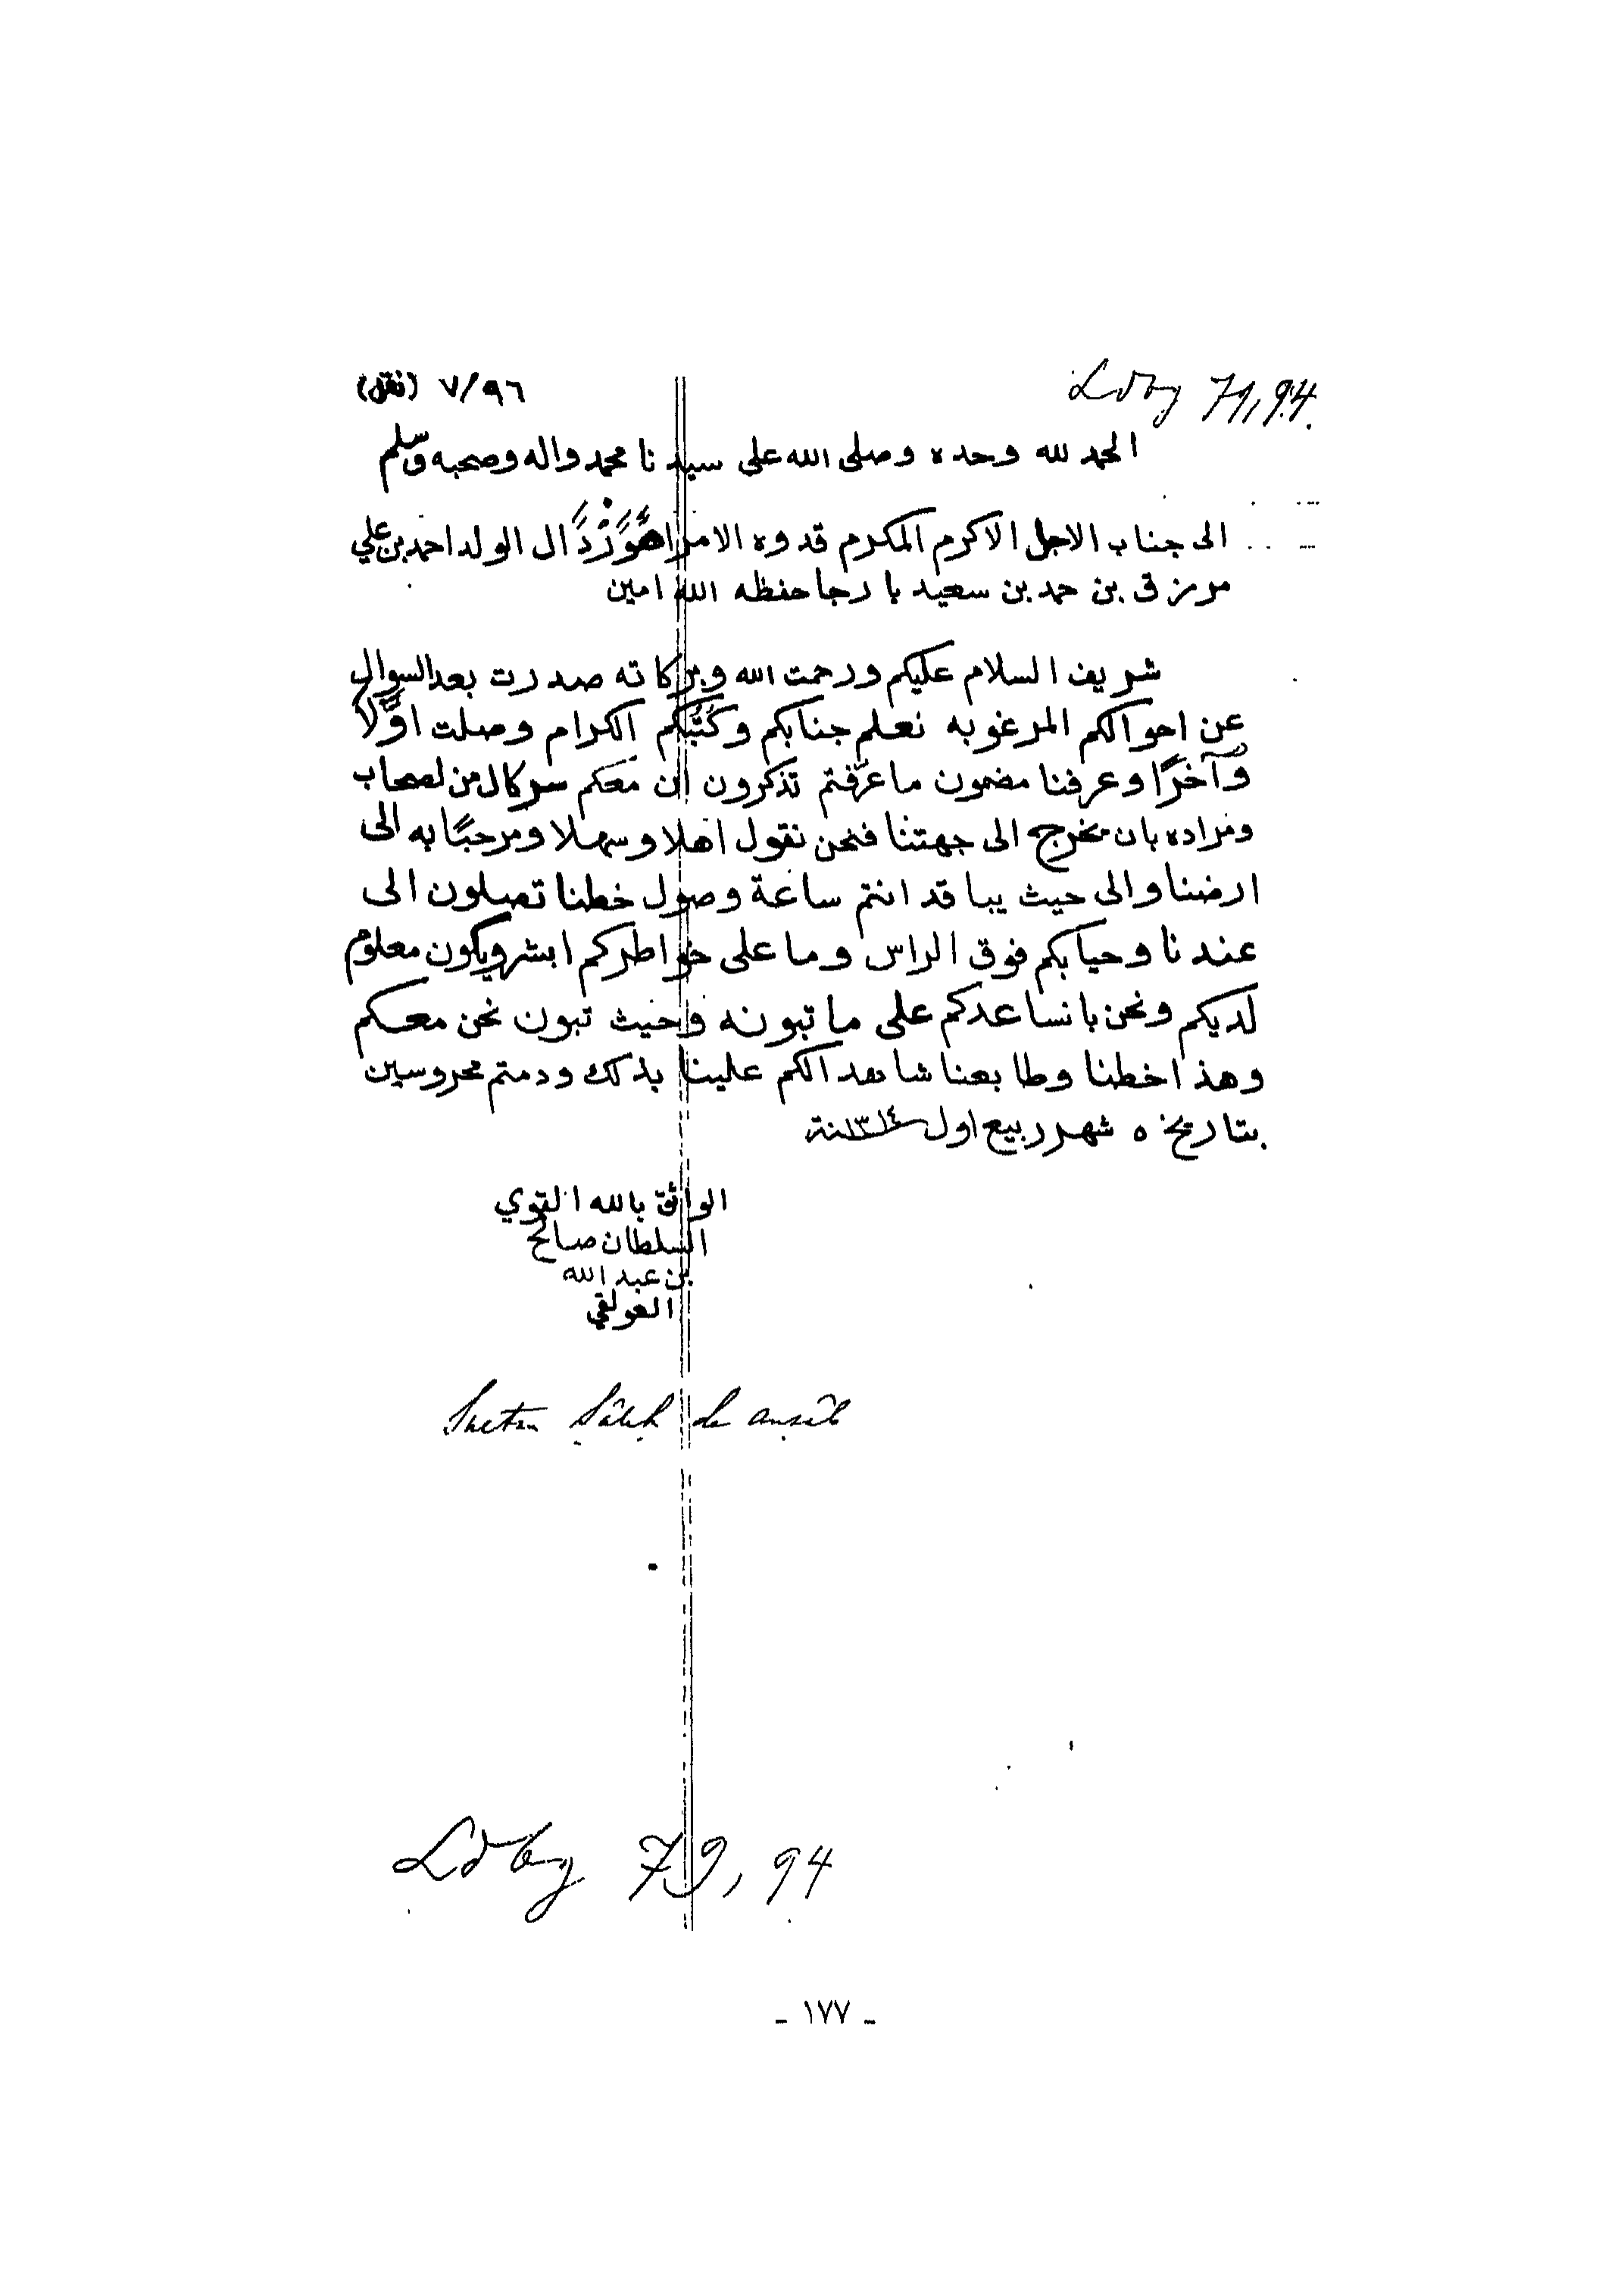 Ldbg 79, 94.
٧/٩٦ (نقل)
الحمد لله وحده وصلى الله على سيدنا محمد واله وصحبه وسلم
الى جناب الاجل الاكرم المكرم قدوه الامرا ال الولد احمد بن علي
مرزق بن حمد بن سعيد با رجا حفظه الله امين
شريف السلام عليكم ورحمت الله وبركاته صدرت بعد السوال
عن احوالكم المرغوبه نعلم جنابكم وكتبكم الكرام وصلت اوّلًا
وآخرًا وعرفنا مضمون ما عرّفتم تذكرون ان معكم سركال من لصحاب
ومراده بان مخرج الى جهتنا فنحن نقول اهلا وسهلا ومرحبًا به الى
ارضنا والى حيث يبا قد انتم ساعة وصول خطنا تصلون الى
عندنا وحيا بكم فوق الراس وما على خواطركم ابشر ويكون معلوم
لديكم ونحن با نساعدكم على ما تبونه وحيث تبون نحن معكم
وهذا خطنا وطابعنا شاهد الكم علينا بذلك ودمتم محروسين
بتاريخ ٥ شهر ربيع اول سنة ١٣١٤
الواثق بالله القوي
السلطان صالح
بن عبد الله
العولقي
Sultan Sâleh de ansâb
Ldbg 79, 94
- ١٧٧ -